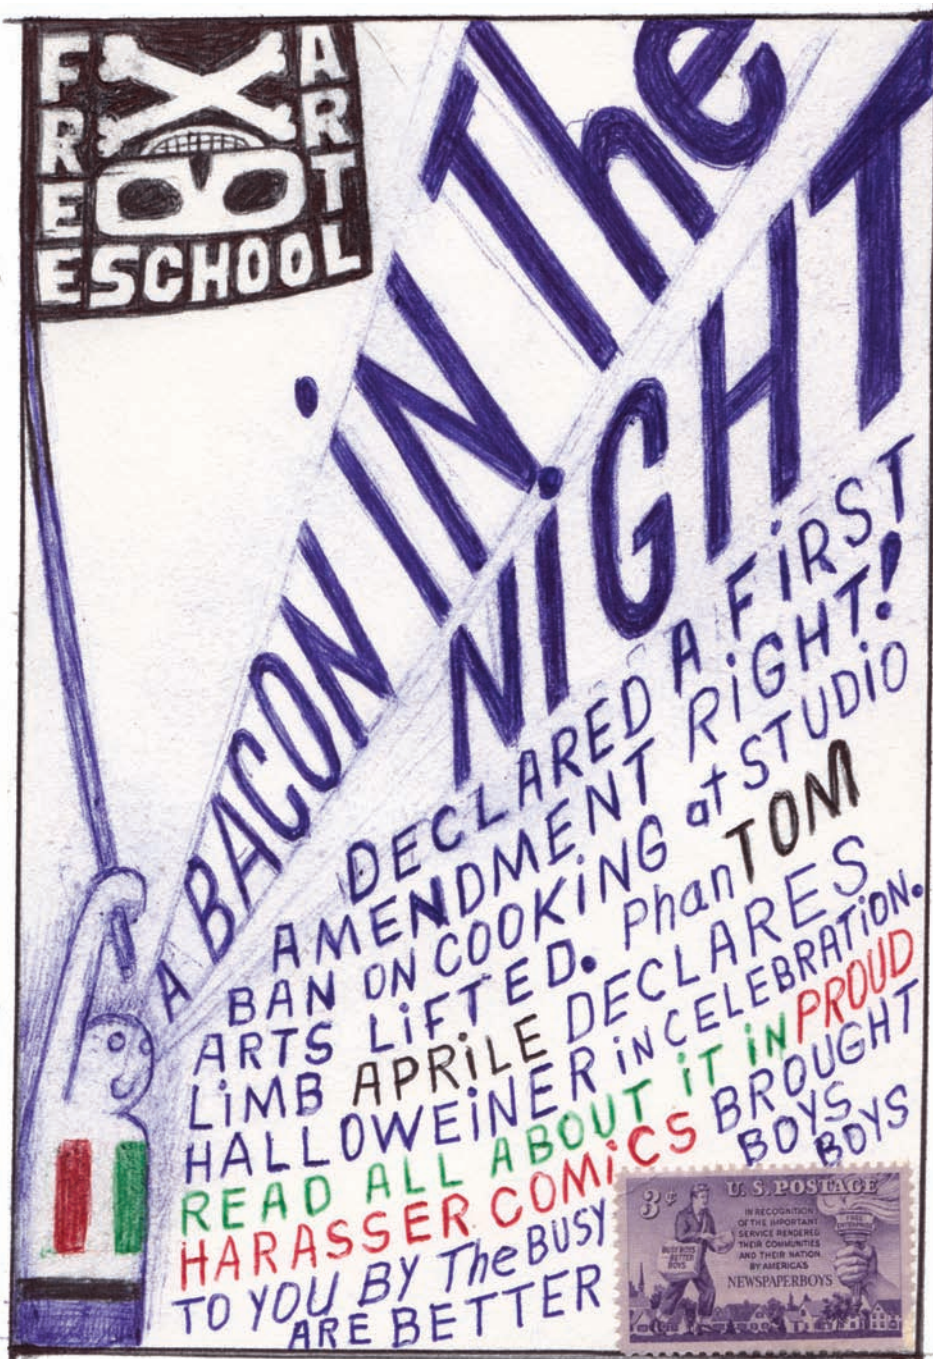 FREE
ART
SCHOOL
A BACON iN The
NiGHT
DECLARED A FiRST
AMENDMENT RiGHT!
BAN ON COOKiNG at STUDiO
ARTS LiFTED. PhanTOM
LiMB APRiLE DECLARES
HALLOWEiNER iN CELEBRATiON.
READ ALL ABOUT iT iN PROUD
HARASSER COMiCS BROUGHT
TO YOU BY The BUSY BOYS
ARE BETTER BOYS
3¢ U.S. POSTAGE
IN RECOGNITION
OF THE IMPORTANT
SERVICE RENDERED
THEIR COMMUNITIES
AND THEIR NATION
BY AMERICA'S
NEWSPAPERBOYS
BUSY BOYS
BETTER
BOYS
FREE
ENTERPRISE